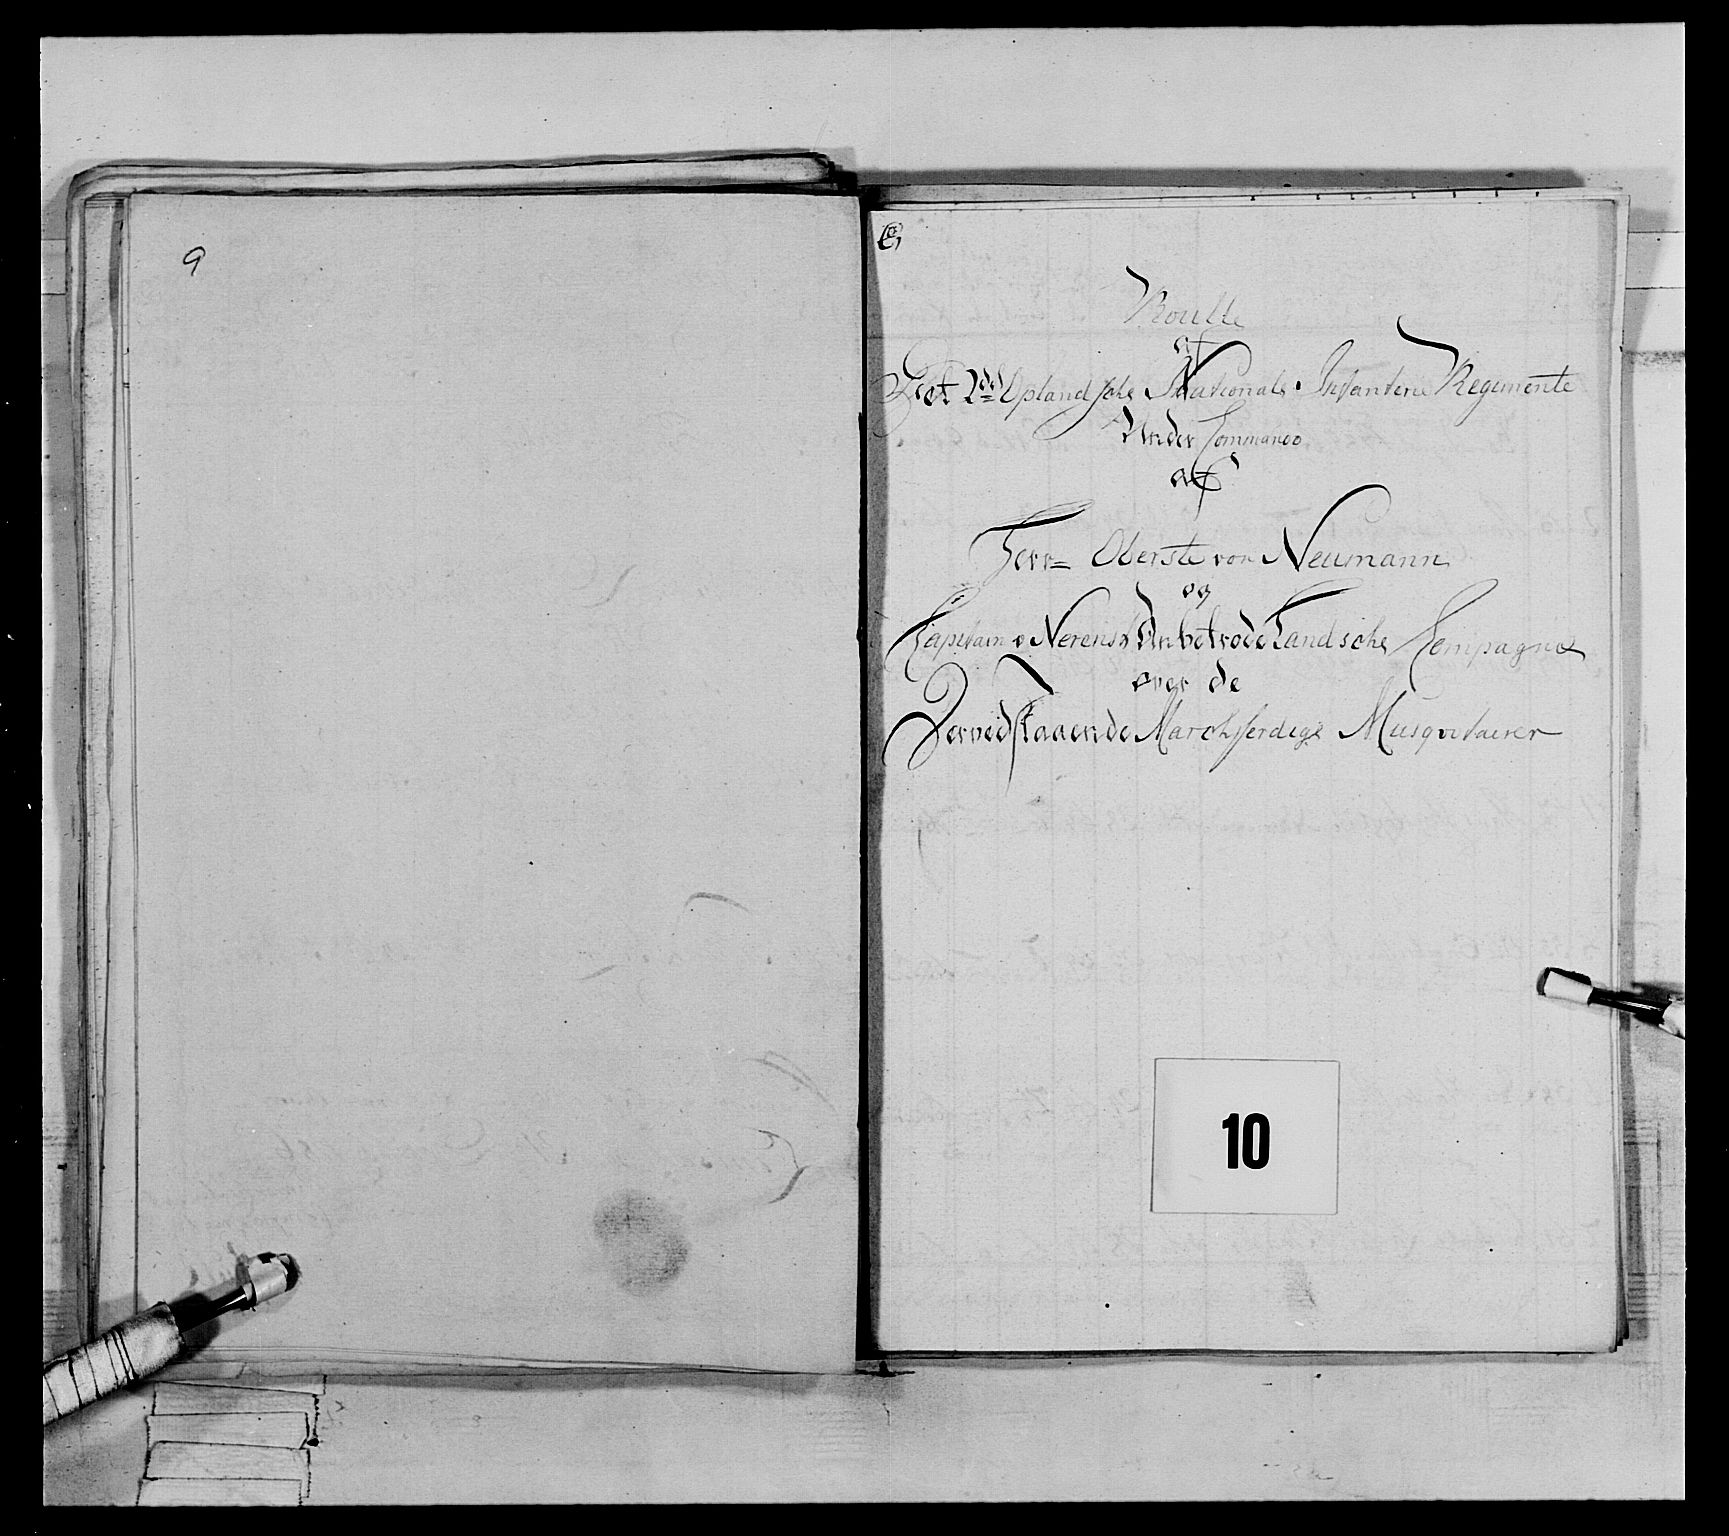 9
Roulle
af
Det 2det Oplandsche Nationals Infanterie Regimente
Under Commando
af
Herr Oberste von Neumann
og
Capitain v Nerensts Anbetrode Landsche Compagnie
over de
Dervedstaaende Marchferdige Musqvetairer
10